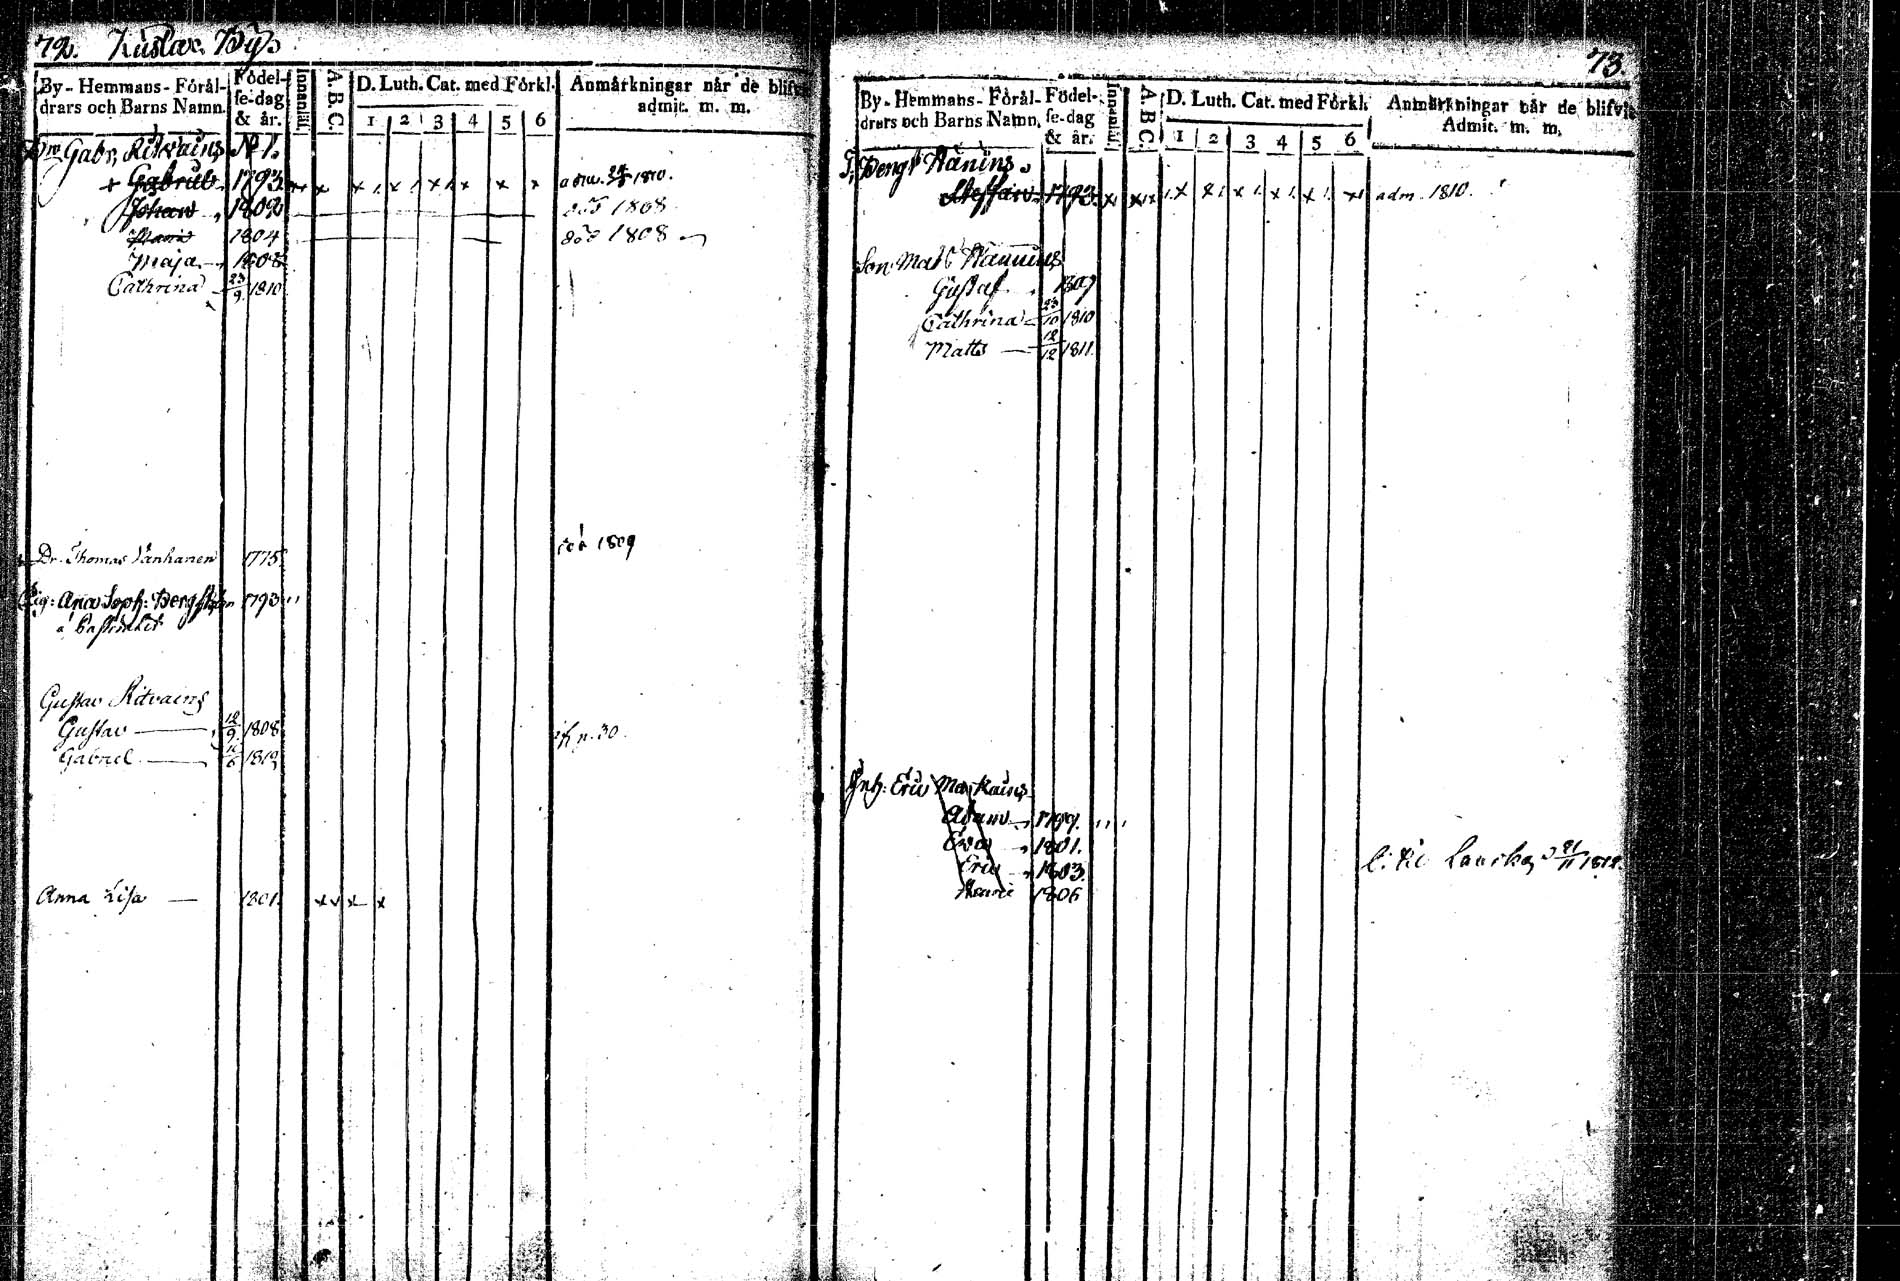 72. Kuslax By
By-Hemmans-Föräl-
drars och Barns Namn.
Födel-
se-dag
& år.
Innantil.
A. B. C.
D. Luth. Cat. med Förkl.
1 2 3 4 5 6
Anmärkningar när de blifvit
admit. m. m.
Gabr. Ritvains N 1.
+ Gabriel 1793 x x x x x x x x adm. 1810.
Johan 1802 död 1808
Maria 1804 död 1808
Maja 1808
Cathrina 23/9 1810
Dr. Thomas Vanhanen 1775 1809
Pig: Ana Soph: Bergström 1793
Gustav Ritvains
Gustav 12/9 1808 n. 30.
Gabriel 11/6 1812
Anna Lisa 1801. x x x x
73.
By-Hemmans-Föräl-
drars och Barns Namn.
Födel-
se-dag
& år.
Innantil.
A. B. C.
D. Luth. Cat. med Förkl.
1 2 3 4 5 6
Anmärkningar när de blifvit
Admit. m. m.
Bengt Nänins
Steffan 1793 x x x x x x x x x adm. 1810.
Son Mats Nänins
Gustaf 1807
Cathrina 23/10 1810
Matts 12/12 1811.
Inh: Eric
Adam 1799.
Eva 1801.
Eric 1803.
Maria 1806
21/11 1812.